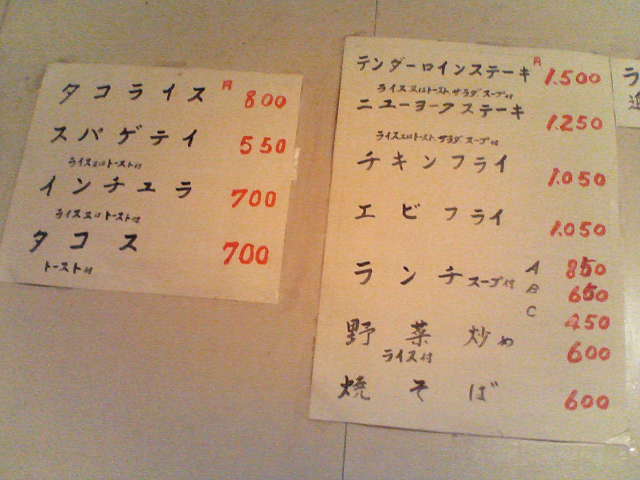 タコライス 円 800
スパゲテイ 550
ライス又はトースト付
インチュラ 700
ライス又はトースト付
タコス 700
トースト付
テンダーロインステーキ 円 1.500
ライス又はトースト サラダ スープ付
ニューヨークステーキ 1.250
ライス又はトースト サラダ スープ付
チキンフライ 1.050
エビフライ 1.050
ランチ スープ付 A 850
B 650
C 450
野菜炒め 600
ライス付
焼そば 600
ラ